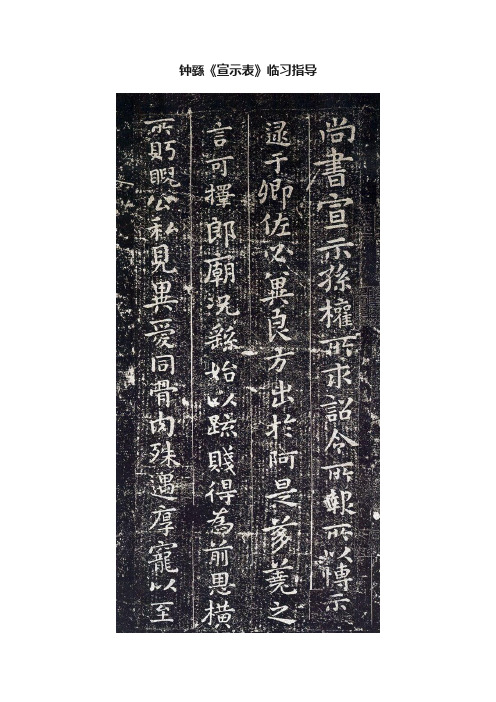 钟繇《宣示表》临习指导
尚書宣示孫權所求詔令所報所以博示
逮于卿佐必冀良方出於阿是芻蕘之
言可擇郎廟況繇始以疏賤得為前恩橫
所眄睨公私見異愛同骨肉殊遇厚寵以至